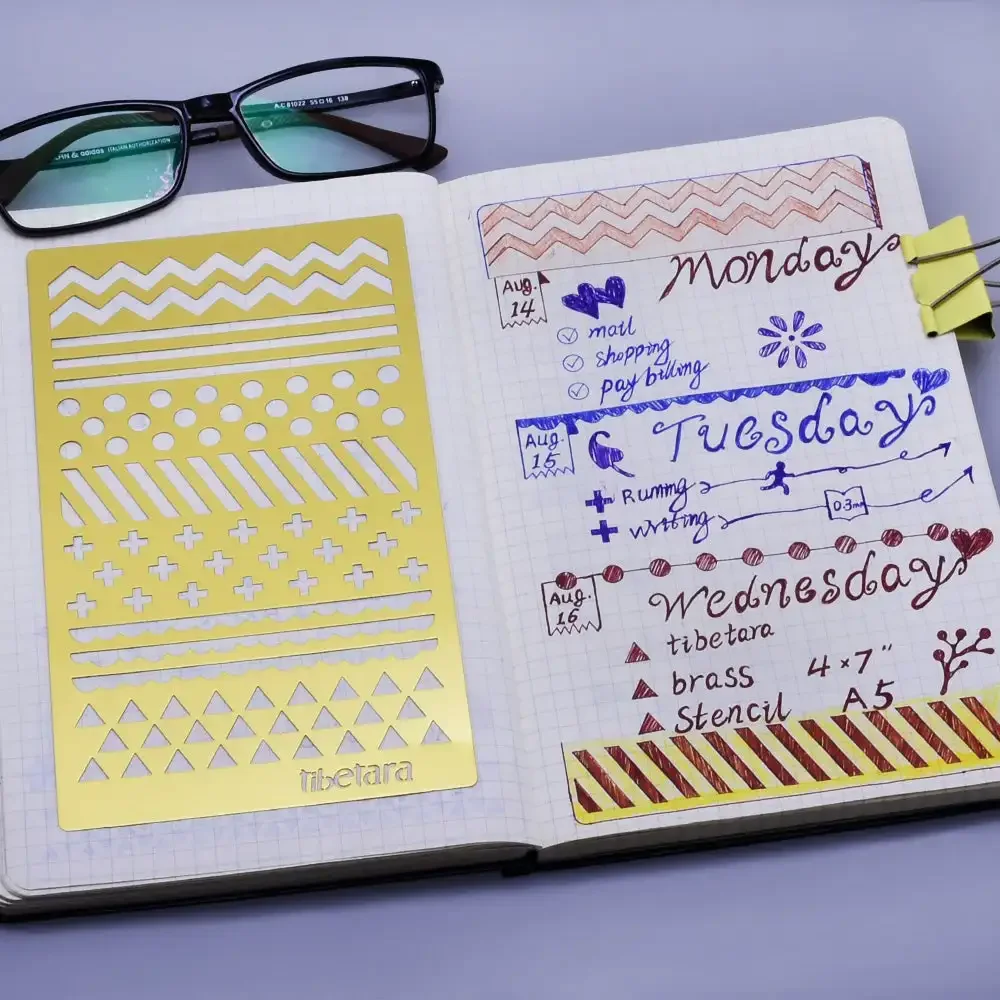 A.C 81022 55□16 138
& adidas ITALIAN AUTHORIZATION
tibetara
Monday
Aug.
14
mail
shopping
pay billing
Tuesday
Aug.
15
Running
writing
0.3mm
Wednesday
Aug.
16
tibetara
brass 4×7"
Stencil A5